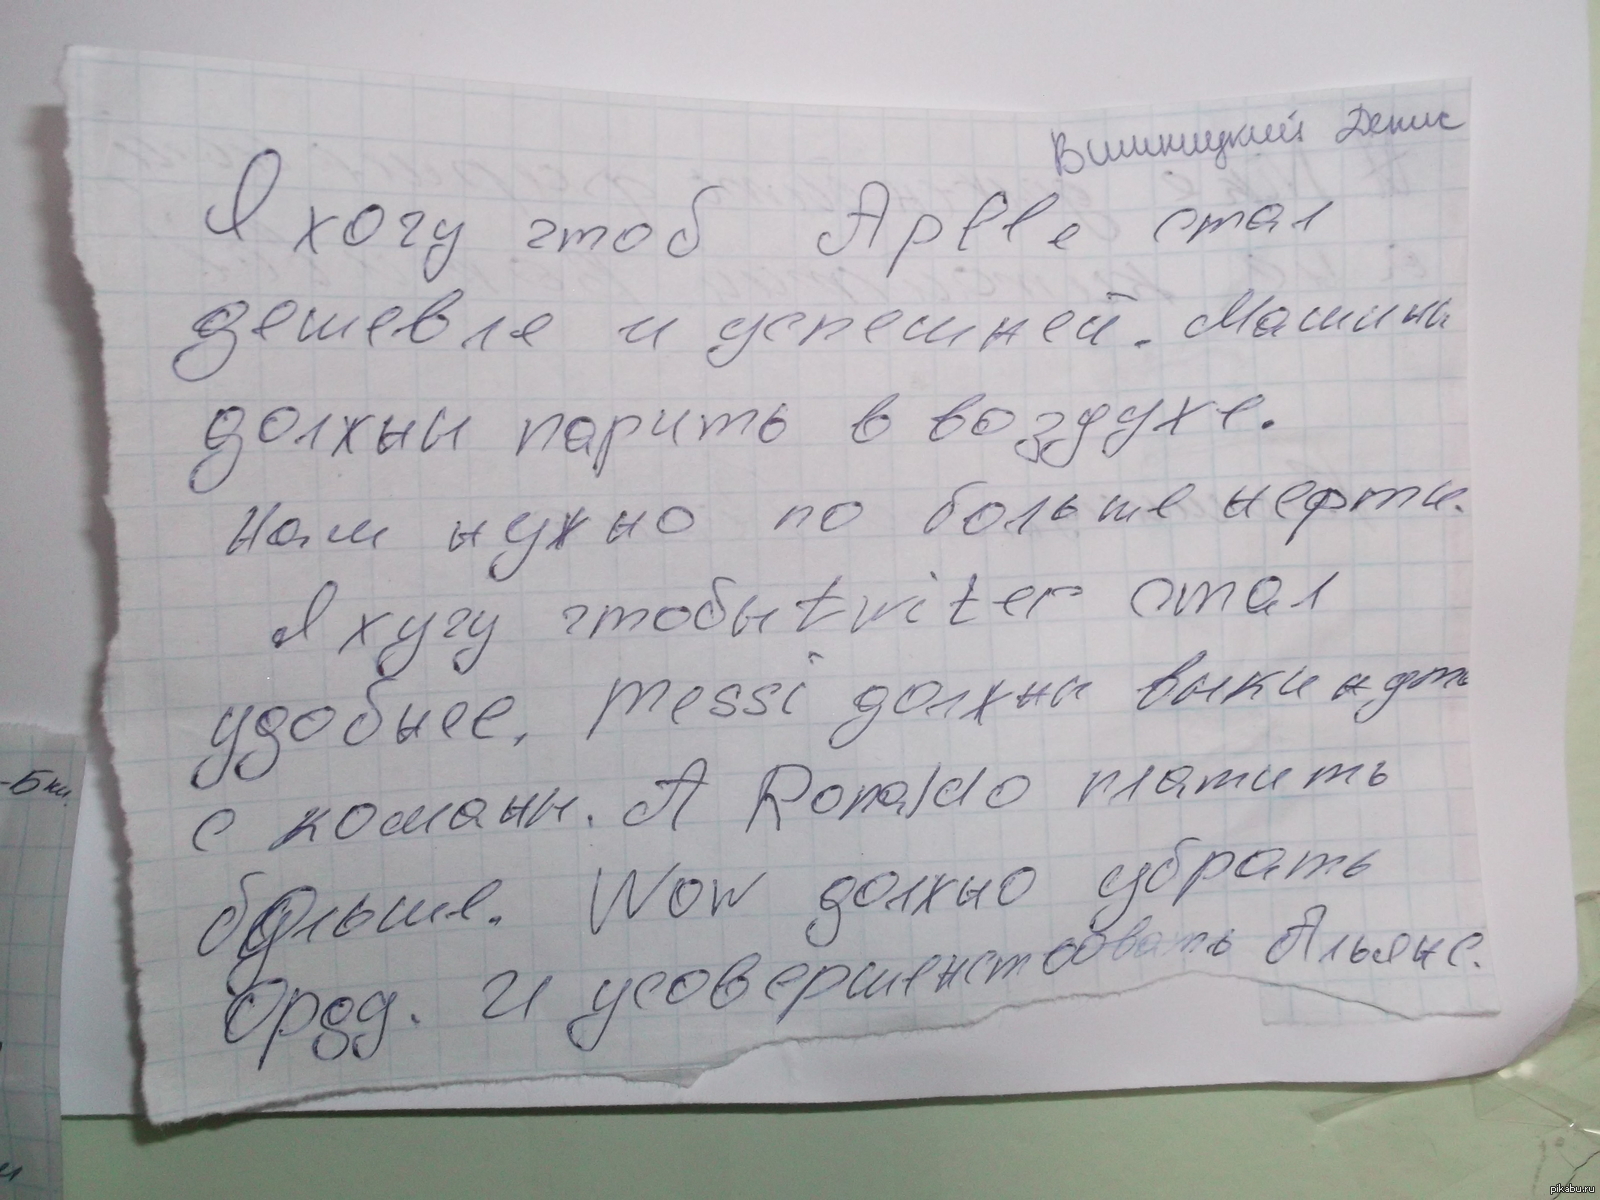 Вишницкий Денис
Я хочу чтоб Aplle стал
дешевле и успешней. Машины
должны парить в воздухе.
Нам нужно по больше нефти.
Я хучу чтобы twiter стал
удобнее, messi должны выкинуть
с команы. А Ronaldo платить
больше. Wow должно убрать
Орду. И усовершенствовать Альянс.
-5км.
pikabu.ru